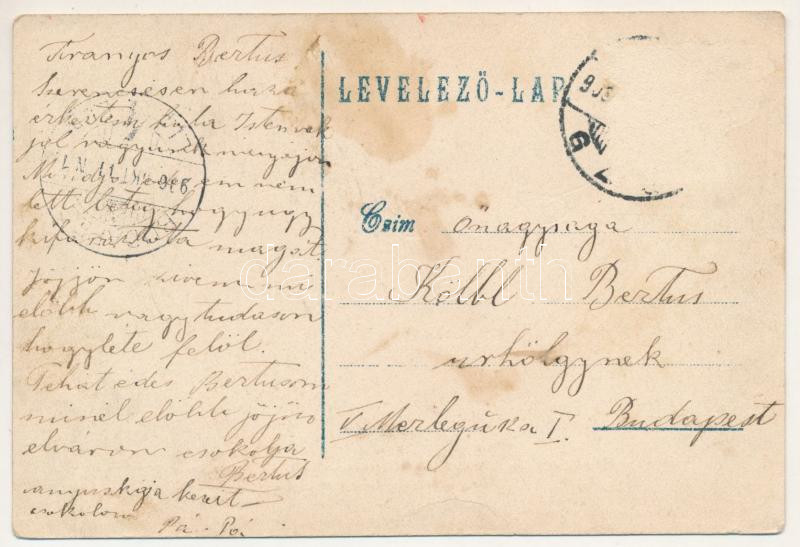 Aranyos Bertus!
Szerencsésen haza
érkeztem hála Istennek
jól vagyunk
Mi édes nem
lett beteg hogy ugy
kifárasztotta magát
jöjjön szivem mi
előbb vagy tudason
hogyléte felöl.
Tehat édes Bertusom
minél előbb jöjön
elvárom csokolja
Bertus
anyuskája kezeit
csokolom
Pá - Pá
LEVELEZŐ-LAP
Czim Önagysága
Kölbl Bertus
urhölgynek
V Merleguka I. Budapest
darabanth